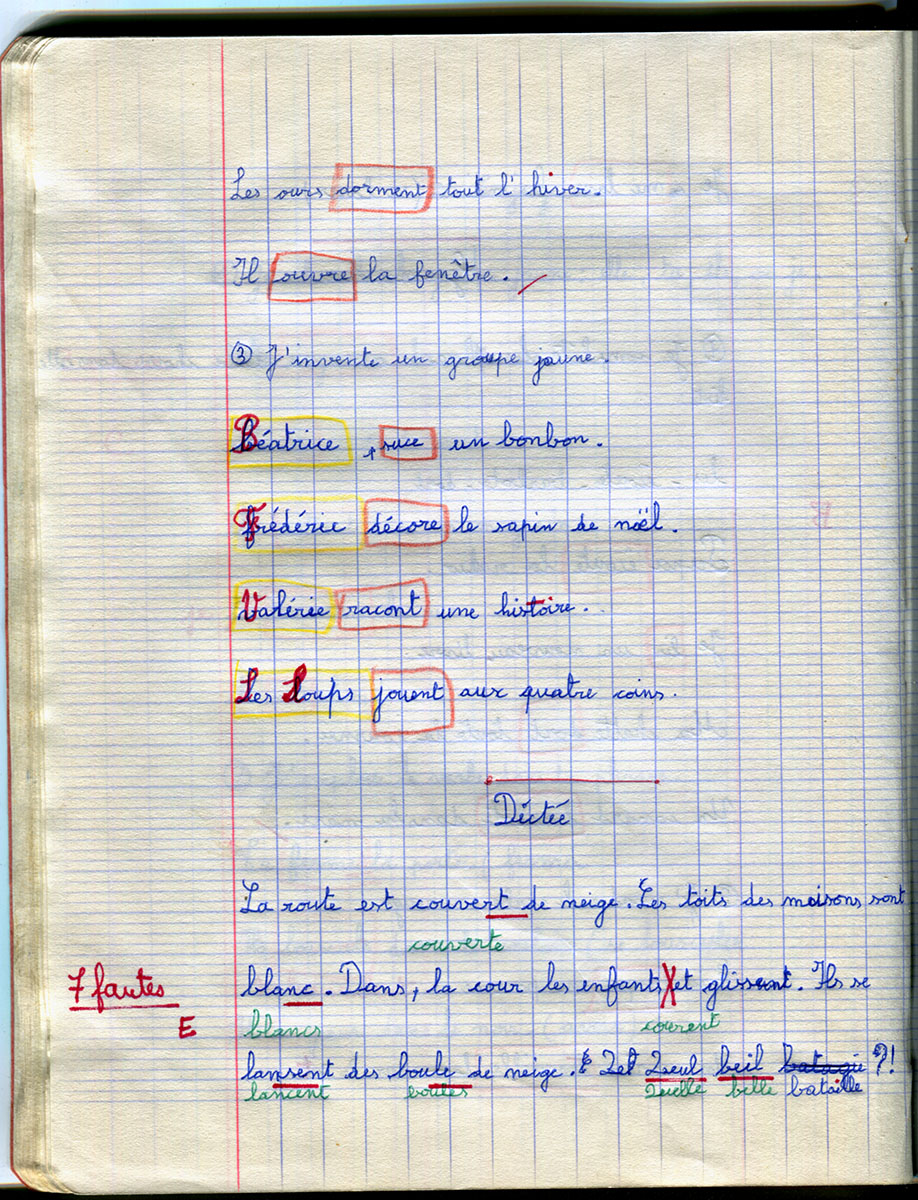 Les ours dorment tout l'hiver.
Il ouvre la fenêtre.
③ J'invente un groupe jaune.
Béatrice suce un bonbon.
Frédéric décore le sapin de nöël.
Valérie racont une histoire.
Les Loups jouent aux quatre coins.
Dictée
La route est couvert de neige. Les toits des maisons sont
couverte
7 fautes
blanc. Dans, la cour les enfants X et glissent. Ils se
E
blancs courent
lansent des boule de neige. Qeul beil batagie ?!
lancent boules Quelle belle bataille